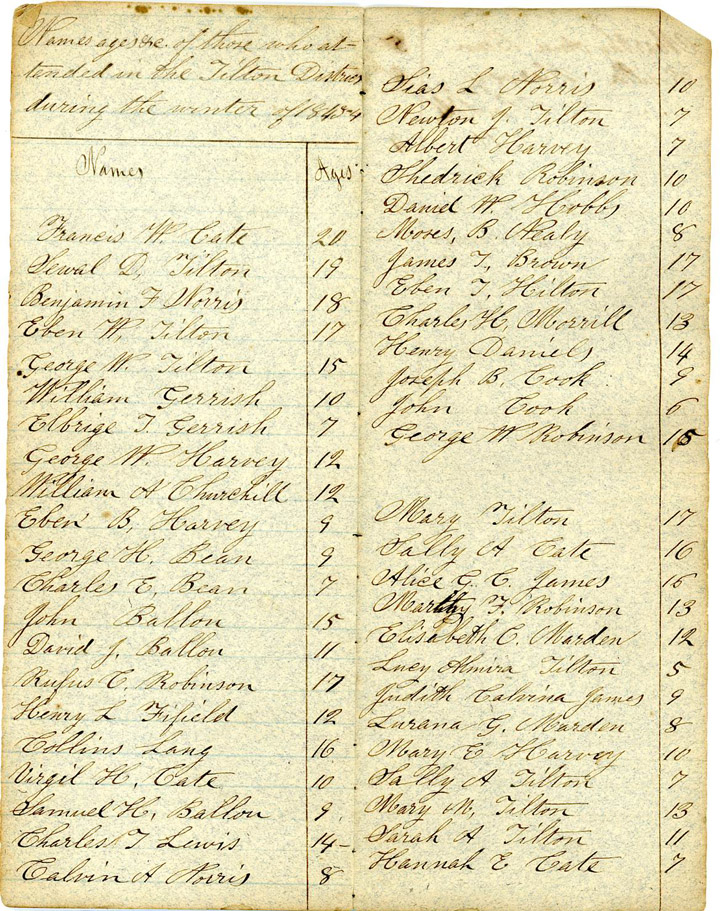 Names ages &c of those who at-
tended in the Tilton District
during the winter of 1843-4
Names Ages
Francis W. Cate 20
Sewal D, Tilton 19
Benjamin F Norris 18
Eben W, Tilton 17
George W. Tilton 15
William Gerrish 10
Elbrige T. Gerrish 7
George W. Harvey 12
William A Churchill 12
Eben B, Harvey 9
George H. Bean 9
Charles E, Bean 7
John Ballou 15
David J. Ballou 11
Rufus C. Robinson 17
Henry L Fifield 12
Collins Lang 16
Virgil H. Cate 10
Samuel H, Ballou 9
Charles T Lewis 14
Calvin A Norris 8
Sias L Norris 10
Newton J. Tilton 7
Albert Harvey 7
Shedrick Robinson 10
Daniel W Hobbs 10
Moses, B. Nealy 8
James T, Brown 17
Eben T, Hilton 17
Charles H, Morrill 13
Henry Daniels 14
Joseph B, Cook 9
John Cook 6
George W Robinson
Mary Tilton 17
Sally A Cate 16
Alice G. C. James 16
F. Robinson 13
Elisabeth C. Marden 12
Lucy Almira Tilton 5
Judith Calvina James 9
Lurana G. Marden 8
Mary E Harvey 10
Sally A Tilton 7
Mary M, Tilton 13
Sarah A Tilton 11
Hannah E Cate 7